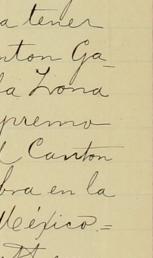 a tener
nton Ga-
la Zona
upremo
l Canton
bra en la
México.=